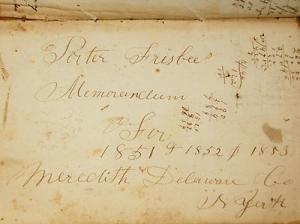 Porter Frisbee
Memorandum
For
1851 & 1852 & 1853
Meredith Delaware Co
N York